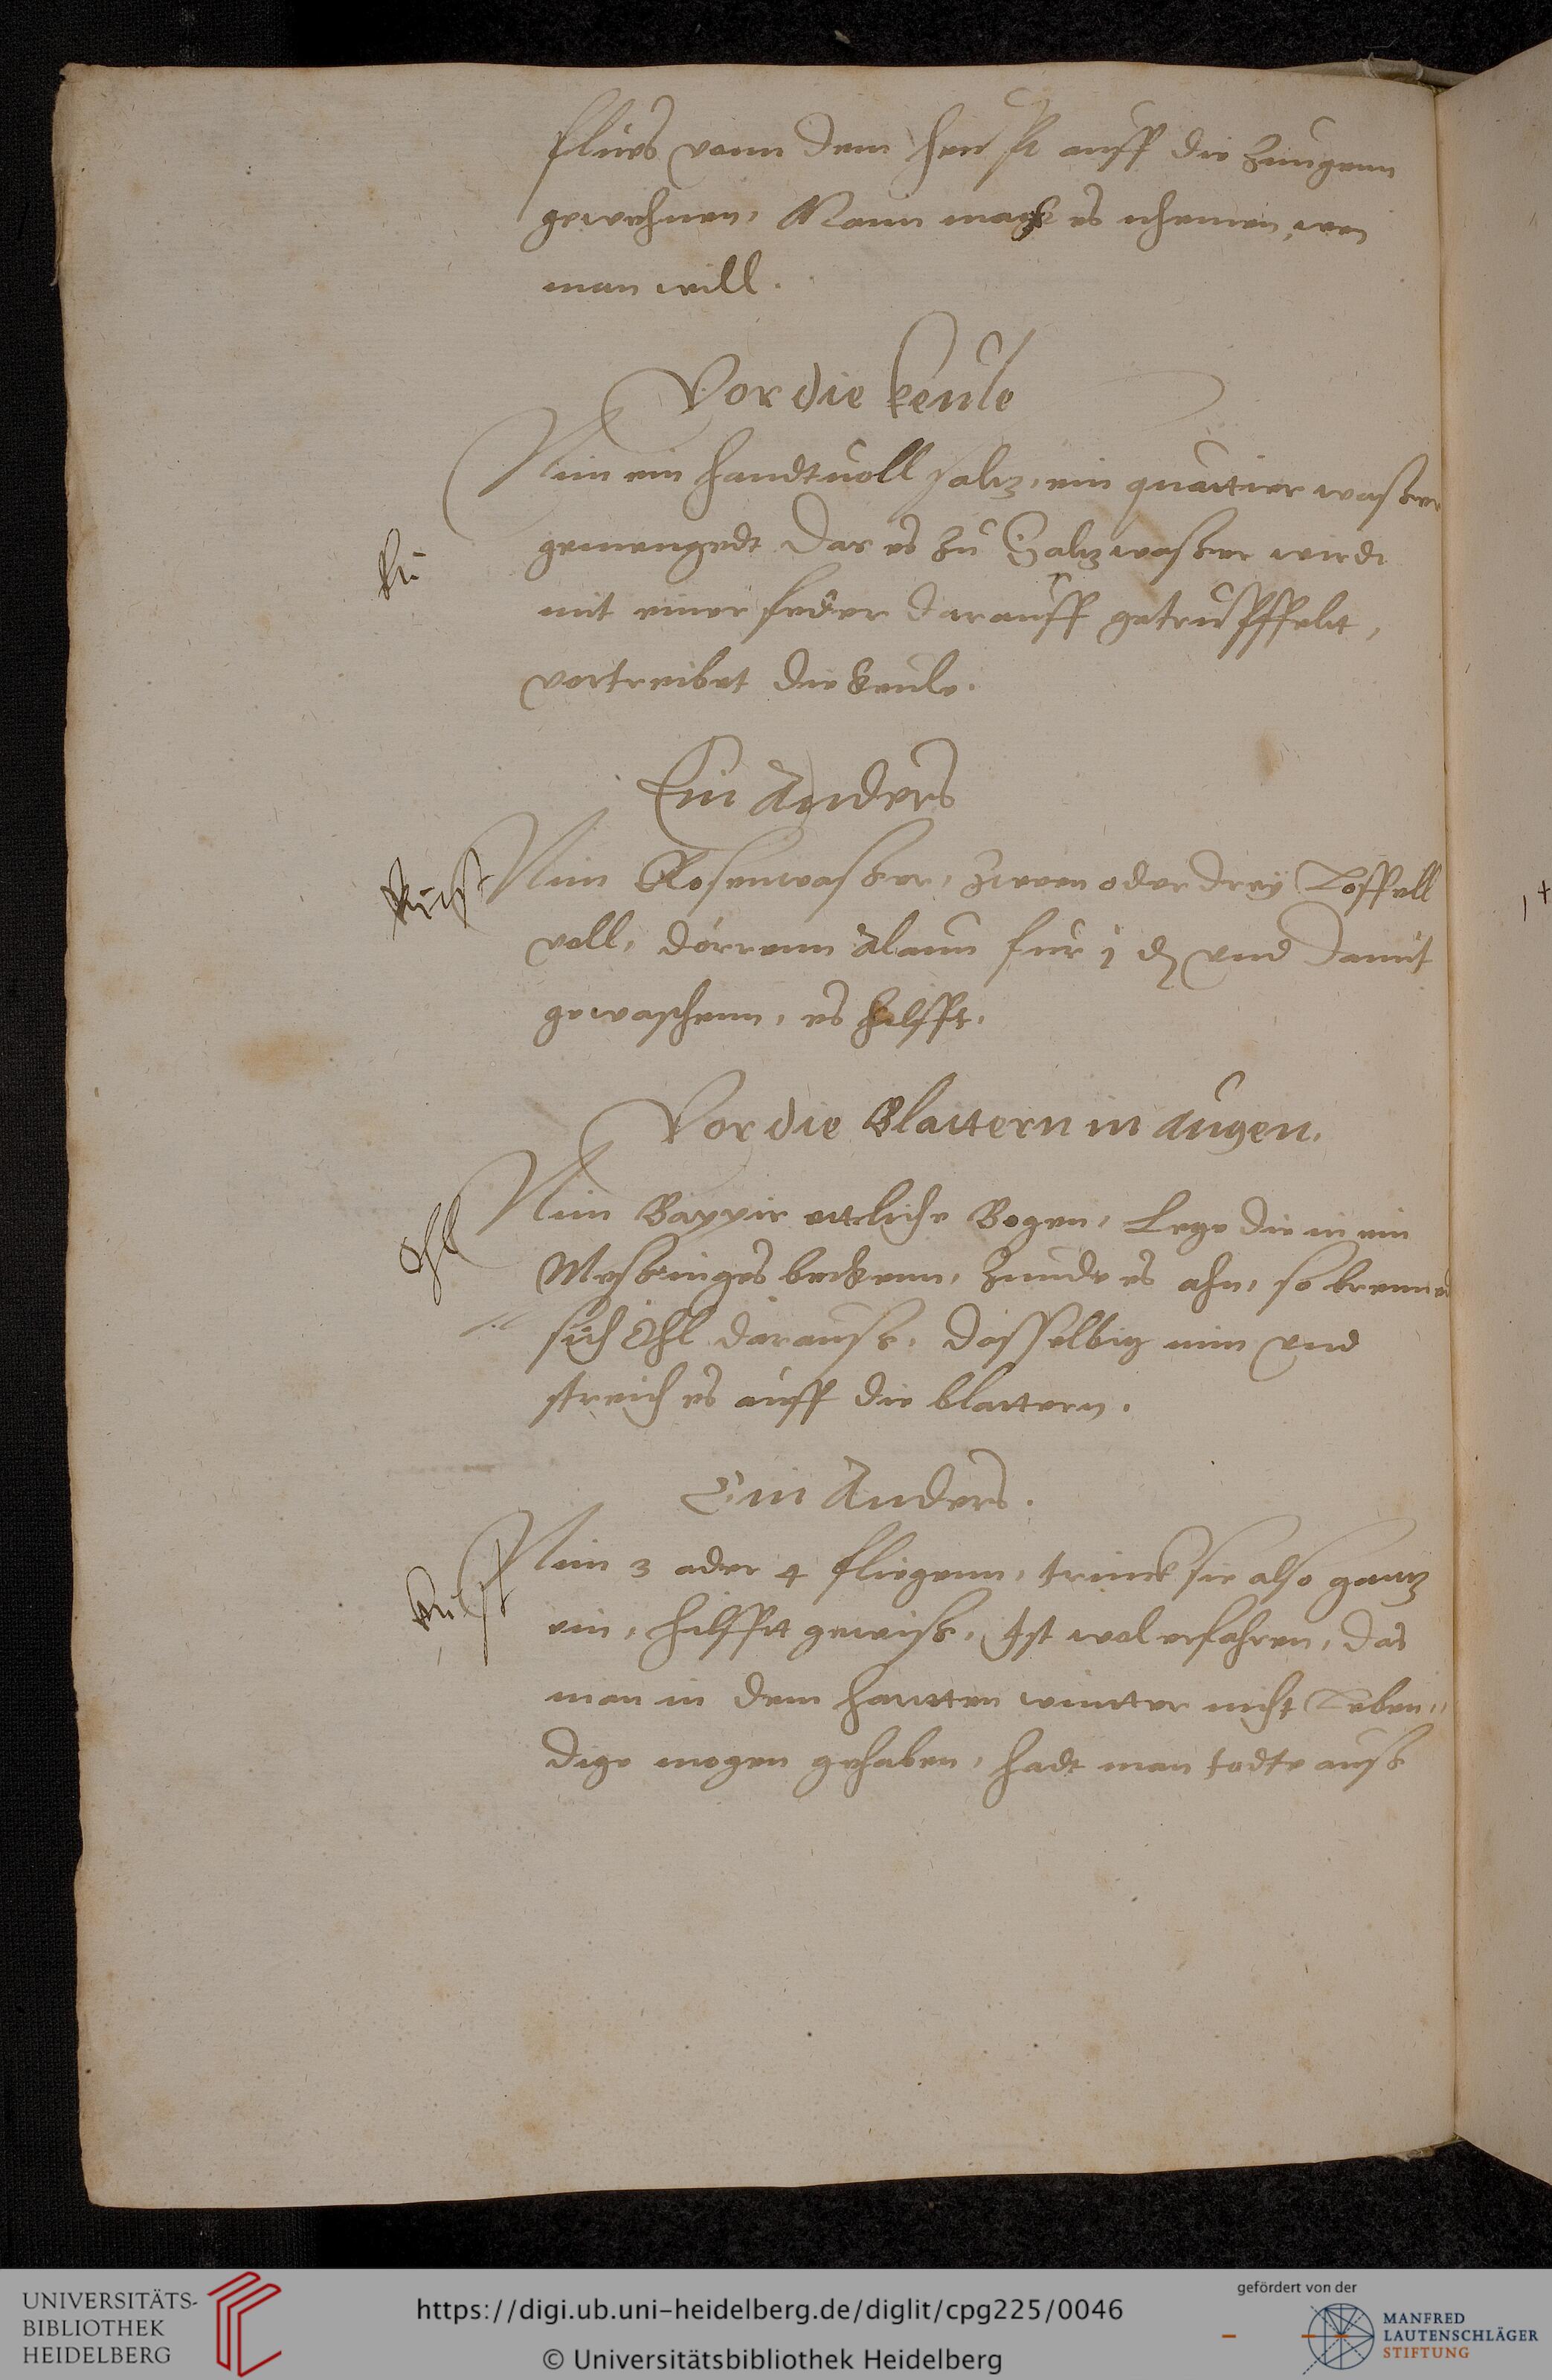 fluss vonn dem heupt auff die Zungenn
gewehnen, Mann mags es nhemen, wen
man will.
Vor die keule
Nim ein handtuoll saltz, ein quartier wasser
gemengedt das es zu Saltzwasser wirdt
mit einer feder darauff getrupffelt,
vertreibet die keule.
Ein Anders
Nim Rosenwasser, zween oder drey Löffell
voll, dörrenn Alaun fur j ₰ vnd damit
gewaschenn, es hilfft.
Vor die Blattern in Augen.
Öhl
Nim Bappir ettliche Bogen, Lege die in ein
Messinges beckenn, zunde es ahn, so brennet
sich Öhl darauss, dasselbig nim vnd
streich es auff die blattern.
Ein Anders.
Nim 3 ader 4 fliegenn, trinck sie also gantz
ein, hilfft gewiss, Ist wol erfahren, das
man in dem hartten wintter nicht Leben„
dige mogen gehaben, hadt man todte auss
UNIVERSITÄTS-
BIBLIOTHEK
HEIDELBERG
https://digi.ub.uni-heidelberg.de/diglit/cpg225/0046
© Universitätsbibliothek Heidelberg
gefördert von der
MANFRED
LAUTENSCHLÄGER
STIFTUNG